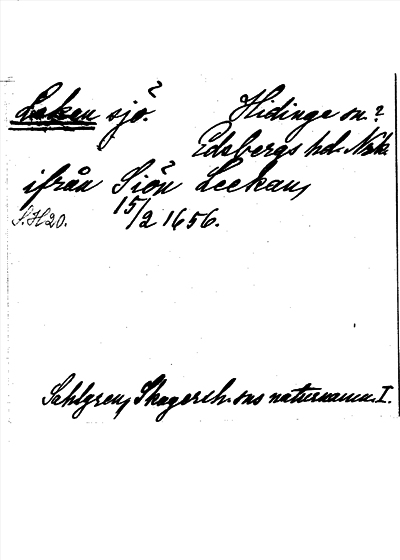 Laken sjö.? Hidinge sn?
Edsbergs hd. Närke.
ifrån Siön Leekan,
S.H 20. 15/2 1656.
Sahlgren, Skagersh. sns naturnamn. I.